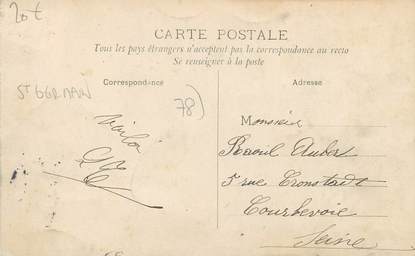 20€
CARTE POSTALE
Tous les pays étrangers n'acceptent pas la correspondance au recto
Se renseigner à la poste
Correspondance
Adresse
ST GERMAIN
78)
Monsieur
Raoul Aubert
5 rue Cronstadt
Courbevoie
Seine